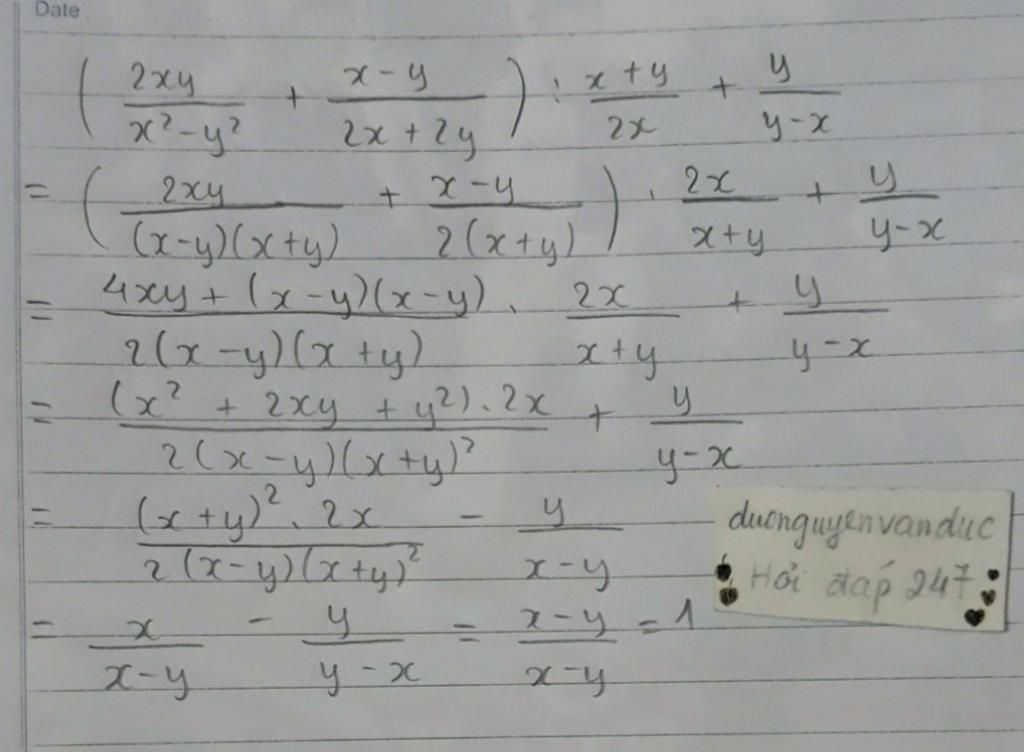 Date
( 2xy / x² - y² + x - y / 2x + 2y ) : x + y / 2x + y / y - x
= ( 2xy / (x-y)(x+y) + x - y / 2(x+y) ) . 2x / x+y + y / y-x
= 4xy + (x-y)(x-y) / 2(x-y)(x+y) . 2x / x+y + y / y-x
= (x² + 2xy + y²) . 2x / 2(x-y)(x+y)² + y / y-x
= (x+y)² . 2x / 2(x-y)(x+y)² - y / x-y
= x / x-y - y / y-x = x-y / x-y = 1
ducnguyenvanduc
Hỏi đáp 247